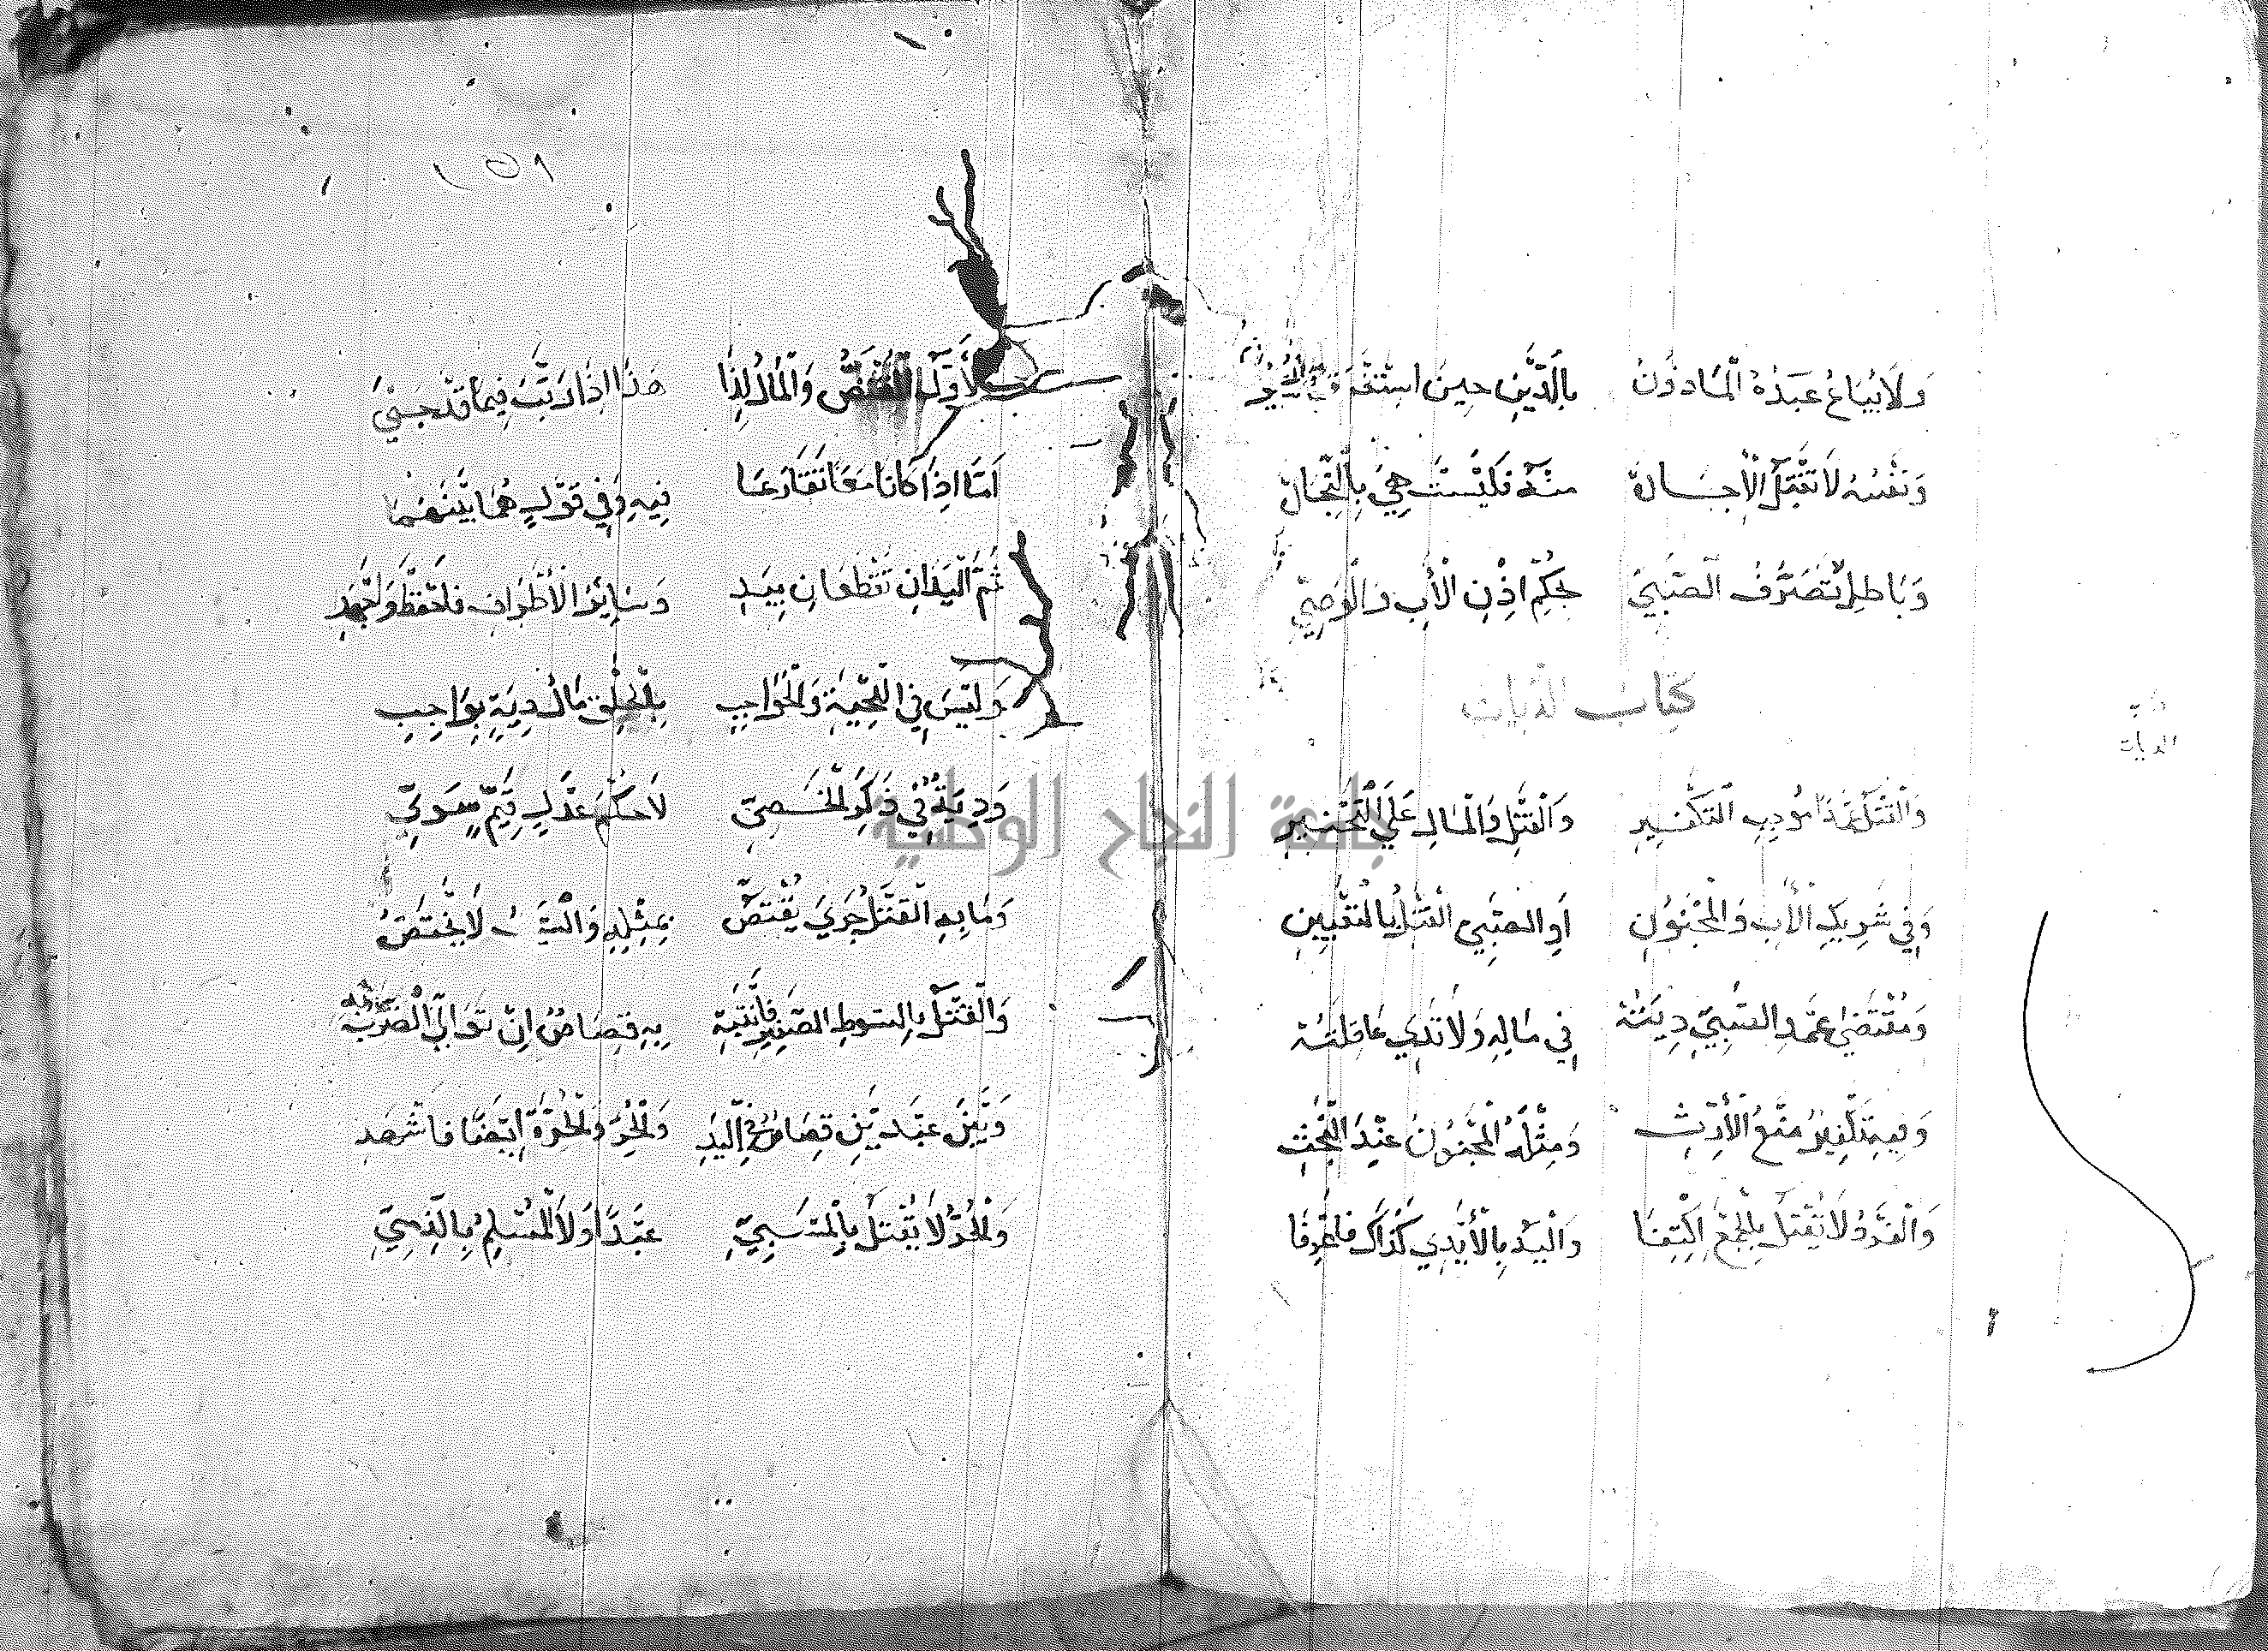 وَلَا يُبَاعُ عَبْدُهُ الْمَأْذُونُ بِالدَّيْنِ حِينَ اسْتَغْرَقَ
وَنَفْسُهُ لَا تَقْبَلُ الْإِجَارَهْ مِنْهُ فَلَيْسَتْ هِيَ بِالتِّجَارَهْ
وَبَاطِلٌ تَصَرُّفُ الصَّبِيِّ بِحُكْمِ إِذْنِ الْأَبِ وَالْوَصِيِّ
كتاب الديات
كتاب
الديات
وَالْقَتْلُ عَمْدًا مُوجِبُ التَّكْفِيرِ وَالْقَتْلُ وَالْمَالُ عَلَى التَّخْيِيرِ
وَفِي شَرِيكِ الْأَبِ وَالْمَجْنُونِ أَوِ الصَّبِيِّ الْقَتْلُ
وَمُقْتَضَى عَمْدِ الصَّبِيِّ دِيَتُهْ فِي مَالِهِ وَلَا تَدِي عَاقِلَتُهْ
وَفِيهِ تَكْفِيرٌ وَمَنْعُ الْإِرْثِ وَمِثْلُهُ الْمَجْنُونُ عِنْدَ الْبَحْثِ
وَالْفَرْدُ لَا يُقْتَلُ بِالْجَمْعِ اكْتِفَا وَالْيَدُ بِالْأَيْدِي كَذَاكَ فَاعْرِفَا
١٥٦
لِأَوَّلِ وَالْمَالُ لِذَا هَذَا إِذَا رَتَّبَ فِيمَا قَدْ جَنَى
أَمَّا إِذَا كَانَا مَعًا تَقَارَعَا فِيهِ وَفِي قَوْلٍ هُمَا بَيْنَهُمَا
ثُمَّ الْيَدَانِ تُقْطَعَانِ بِيَدِ وَسَائِرُ الْأَطْرَافِ فَاحْفَظْ وَاجْهَدِ
وَلَيْسَ فِي اللِّحْيَةِ وَالْحَوَاجِبِ بِالْحَلْقِ مَالُ دِيَةٍ بِوَاجِبِ
وَدِيَةٌ فِي ذَكَرِ الْخَصِيِّ لَا حُكْمَ عَدْلٍ قَيِّمٍ سَوِيِّ
وَمَا بِهِ الْقَتْلُ جَرَى يُقْتَصُّ بِمِثْلِهِ لَا يَخْتَصُّ
وَالْقَتْلُ بِالسَّوْطِ الصَّغِيرِ فَانْتَبِهْ بِهِ قِصَاصٌ إِنْ تَوَالَى الضَّرْبُ بِهْ
وَبَيْنَ عَبْدَيْنِ قِصَاصٌ فِي الْيَدِ وَالْحُرِّ وَالْحُرَّةِ أَيْضًا فَاشْهَدِ
وَالْحُرُّ لَا يُقْتَلُ عَبْدًا وَلَا الْمُسْلِمُ بِالذِّمِّيِّ
جامعة النجاح الوطنية